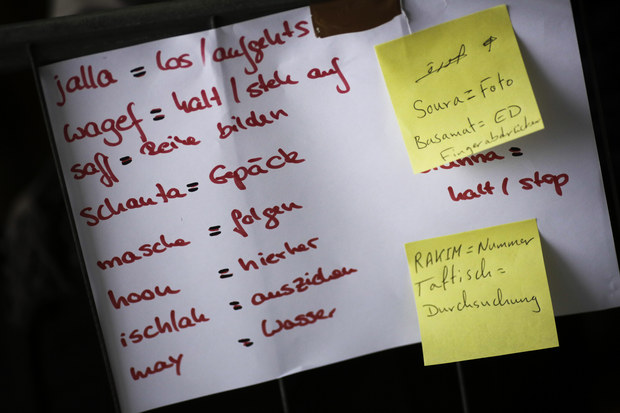 jalla = los / aufgehts
wagef = halt / steh auf
saff = Reihe bilden
Schanta = Gepäck
masche = folgen
hoon = hierher
ischlah = ausziehen
may = Wasser
Soura = Foto
Basamat = ED
Fingerabdrücke
= 
halt / stop
RAKIM = Nummer
Taftisch =
Durchsuchung